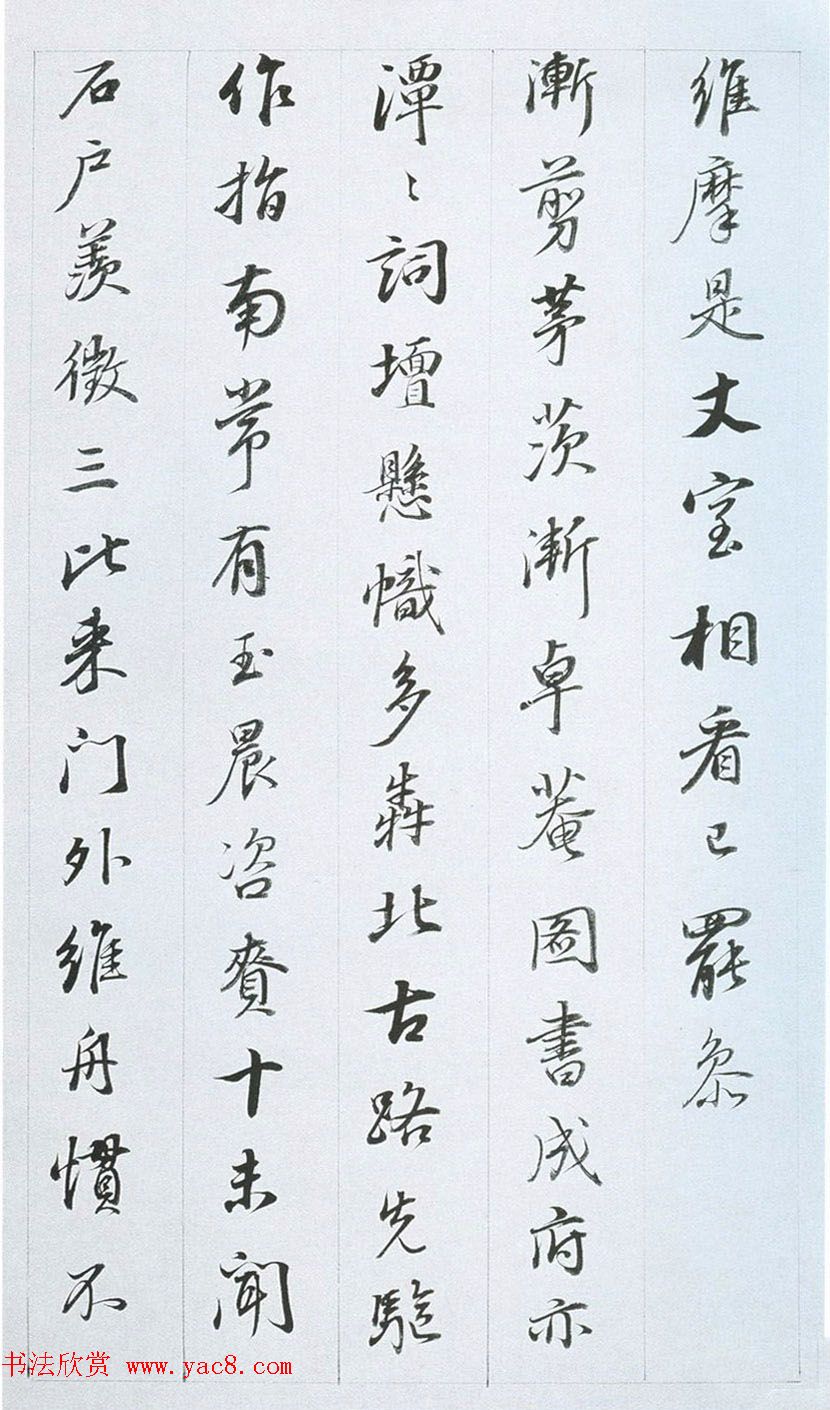 维摩是丈室相看已罷叅
漸剪茅茨漸卓菴圖書成府亦
潭〻詞壇懸幟多犇北古路先驅
作指南常有玉晨咨賚十未聞
石户羨徵三比来门外維舟慣不
书法欣赏 www.yac8.com